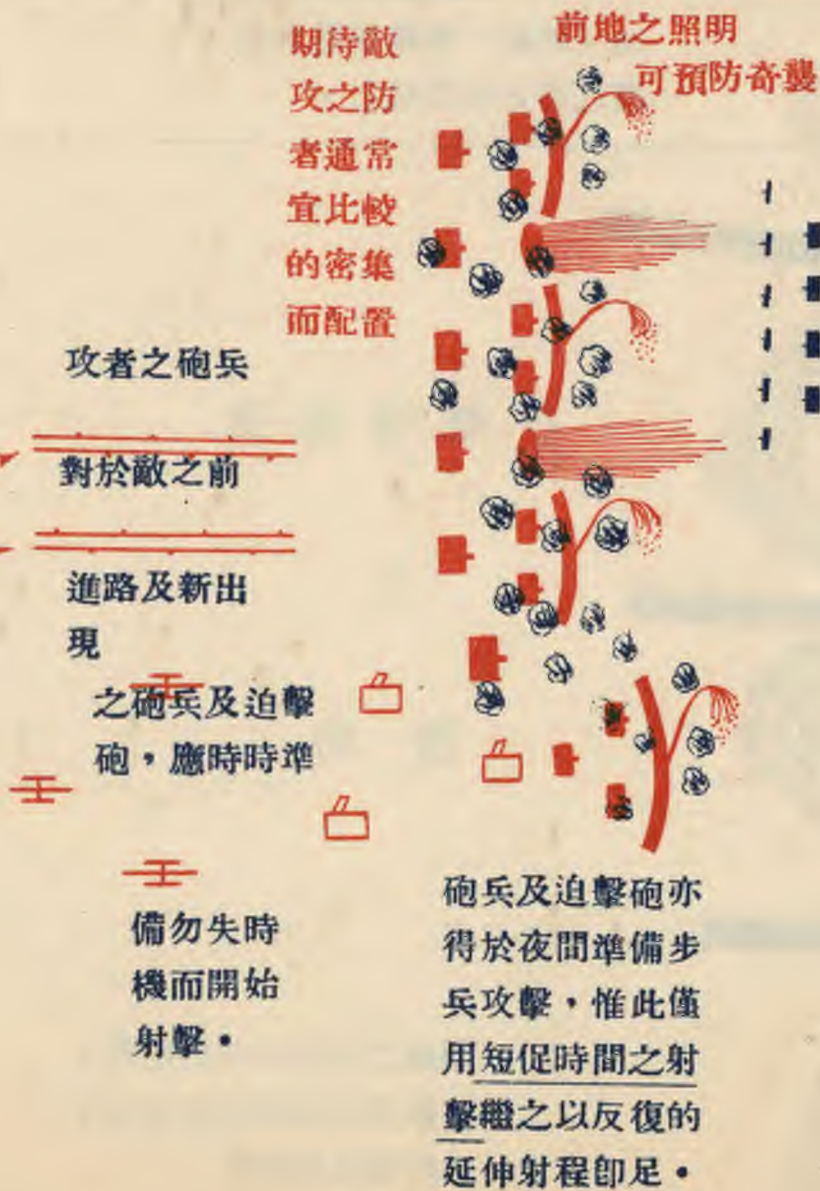 前地之照明
可預防奇襲
期待敵
攻之防
者通常
宜比較
的密集
而配置
攻者之砲兵
對於敵之前
進路及新出
現
之砲兵及迫擊
砲，應時時準
備勿失時
機而開始
射擊．
砲兵及迫擊砲亦
得於夜間準備步
兵攻擊，惟此僅
用短促時間之射
擊繼之以反復的
延伸射程卽足．